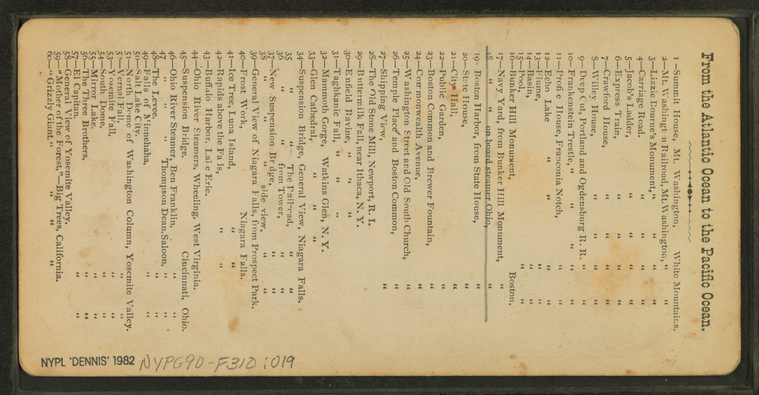 From the Atlantic Ocean to the Pacific Ocean.
1—Summit House, Mt. Washington, White Mountains.
2—Mt. Washington Railroad, Mt. Washington, "
3—Lizzie Bourne's Monument, " "
4—Carriage Road, " "
5—Jacob's Ladder, " "
6—Express Train, " "
7—Crawford House, "
8—Willey House, "
9—Depot, Portland and Ogdensburg R. R. "
10—Frankenstein Trestle, " " "
11—Profile House, Franconia Notch, "
12—Echo Lake " "
13—Flume, " "
14—Basin, " "
15—Pool, " "
16—Bunker Hill Monument, Boston.
17—Navy Yard, from Bunker Hill Monument, "
18— " " on board steamer Ohio, "
19—Boston Harbor, from State House, "
20—State House, "
21—City Hall, "
22—Public Garden, "
23—Boston Common and Brewer Fountain, "
24—Commonwealth Avenue, "
25—Washington Street and Old South Church, "
26—Temple Place and Boston Common, "
27—Shipping View, "
28—The Old Stone Mill, Newport, R. I.
29—Buttermilk Fall, near Ithaca, N. Y.
30—Enfield Ravine, " " "
31—Taghkanic Fall, " " "
32—Mammoth Gorge, Watkins Glen, N. Y.
33—Glen Cathedral, " " "
34—Suspension Bridge, General View, Niagara Falls.
35 " " The Railroad, "
36 " " from Tower, "
37—New Suspension Bridge, "
38— " " side view, "
39—General View of Niagara Falls, from Prospect Park.
40—Frost Work, Niagara Falls.
41—Ice Tree, Luna Island, " "
42—Rapids above the Falls, " "
43—Buffalo Harbor, Lake Erie.
44—Ohio River Steamers, Wheeling, West Virginia.
45—Suspension Bridge, Cincinnati, Ohio.
46—Ohio River Steamer, Ben Franklin, " "
47 " " Thompson Dean, Saloon, " "
48—The Levee, " "
49—Falls of Minnehaha,
50—Salt Lake City.
51—North Dome of Washington Column, Yosemite Valley.
52—Vernal Fall, " "
53—Yosemite Fall, " "
54—South Dome, " "
55—Mirror Lake, " "
56—The Three Brothers, " "
57—El Capitan, " "
58—General View of Yosemite Valley.
59—"Mother of the Forest,"—Big Trees, California.
60—"Grizzly Giant," " " "
NYPL 'DENNIS' 1982 NYPG90-F310:019